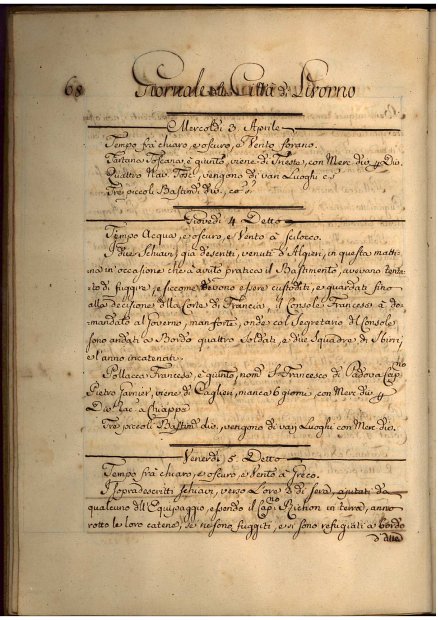 68 Giornale della Città di Livorno
Mercoldì 3. Aprile
Tempo frà chiaro, e oscuro, e Vento forano.
Tartana Toscana, è quinto, viene di Trieste, con Merc. div.
Quattro Nav. Tosc. vengono di vari Luoghi
Tre piccoli Bastim. div.
Giovedì 4. Detto
Tempo Acqua, e oscuro, e Vento à scilocco.
I due Schiavi, già descritti, venuti d'Algieri, in questa matti-
na in occasione che à avuto pratica il Bastimento, avevano tenta-
to di fuggire, e siccome devono essere custoditi, e guardati fino
alla decisione della Corte di Francia, il Console Francese à do-
mandato al Governo, man forte, onde col Segretario del Console
sono andati a Bordo quattro Soldati, e due Squadre di Sbirri,
e l'anno incatenati.
Pollacca Francese, è quinto, nom. S. Francesco di Padova Cap.no
Pietro Garnier, viene di Caglieri, manca 6 giorni, con Merc. div.
Div. Rac. a Chiappe
Tre piccoli Bastim. div. vengono di vari Luoghi con Merc. div.
Venerdì 5. Detto
Tempo frà chiaro, e oscuro, e Vento à Greco.
I sopradescritti Schiavi, verso L'ore di sera, ajutati da
qualcuno dell'Equipaggio, essendo il Cap.no Richon in terra, anno
rotto le loro catene, se ne sono fuggiti, e si sono refugiati a bordo
d'altro